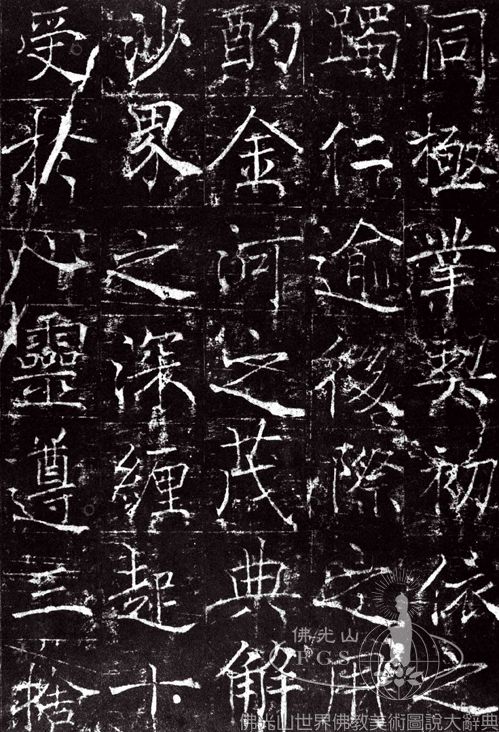 同極業契初依之
躅仁逾後際定用
酌金河之茂典解
沙界之深纏起十
受於心靈遵三
佛光山
F.G.S.
佛光山世界佛教美術圖說大辭典